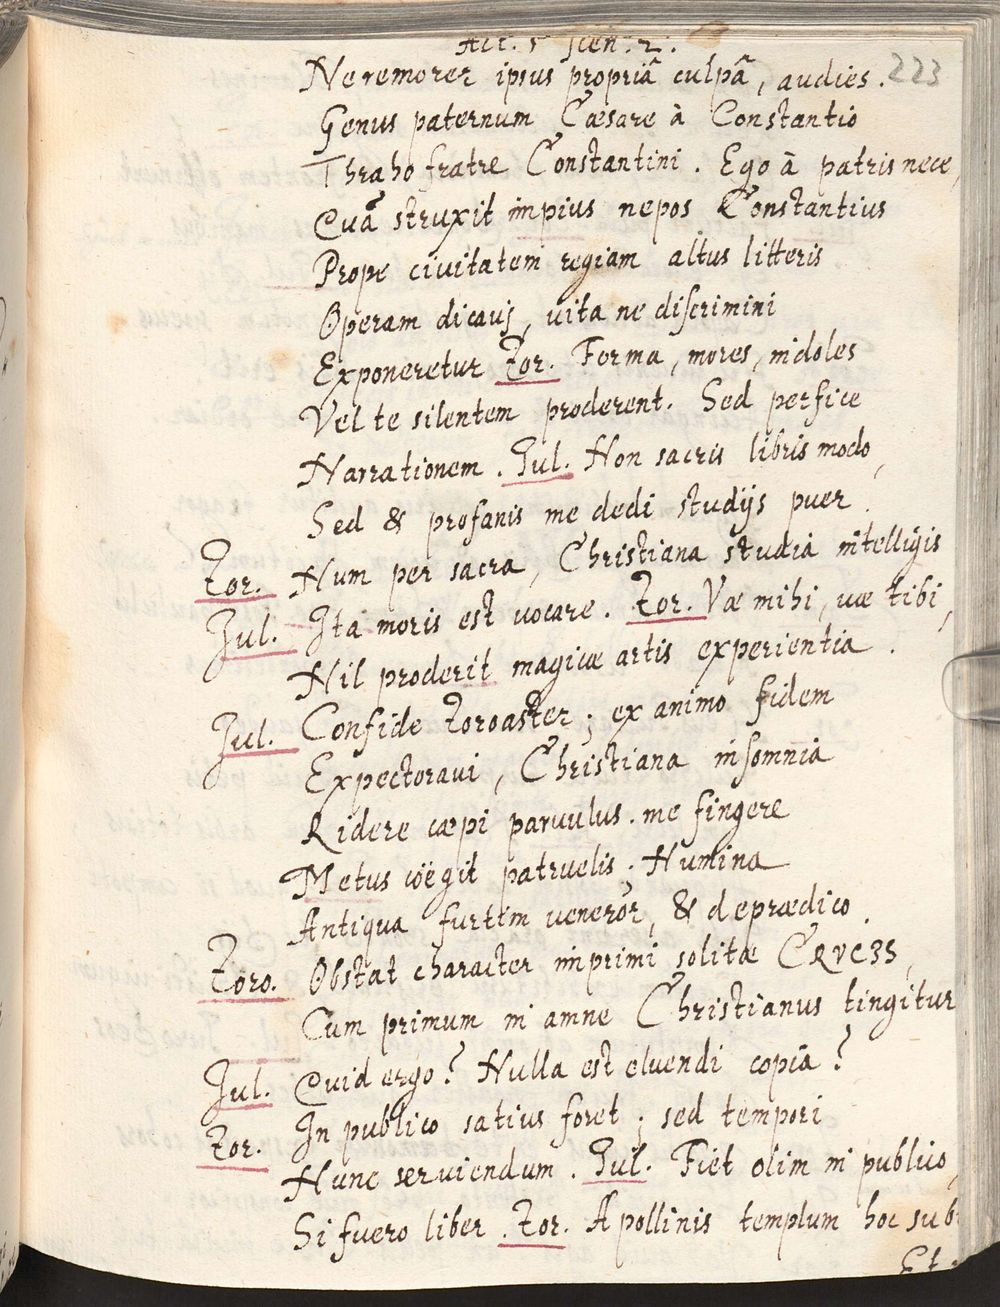 Act. 5 Scen. 2.
Ne remorer ipsus propriâ culpâ, audies. 223
Genus paternum Cæsare à Constantio
Thraho fratre Constantini. Ego à patris nece,
Quã struxit impius nepos Constantius
Prope civitatem regiam altus litteris
Operam dicavj, vita ne discrimini
Exponeretur Zor. Forma, mores, indoles
Vel te silentem proderent. Sed perfice
Narrationem. Jul. Non sacris libris modo,
Sed & profanis me dedi studijs puer.
Zor. Num per sacra, Christiana studia intelligis
Jul. Ita moris est vocare. Zor. Væ mihi, væ tibi,
Nil proderit magicæ artis experientia.
Jul. Confide Zoroaster; ex animo fidem
Expectoravi, Christiana insomnia
Ridere cæpi parvulus. me fingere
Metus coëgit patruelis; Numina
Antiqua furtim veneror, & deprædico.
Zoro. Obstat character imprimi solitæ CRVCIS,
Cum primum in amne Christianus tingitur
Jul. Quid ergo? Nulla est eluendi copia?
Zor. In publico satius foret; sed tempori
Nunc serviendum. Jul. Fiet olim in publico,
Si fuero liber. Zor. Apollinis templum hoc sub
Et